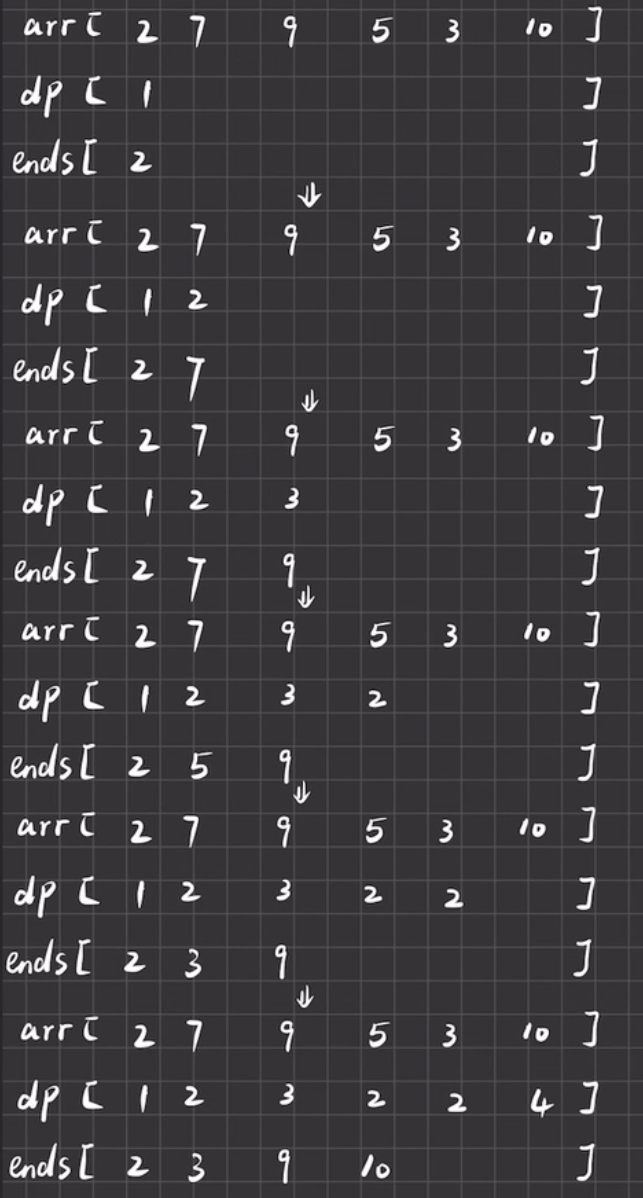 arr [ 2 7 9 5 3 10 ]
dp [ 1 ]
ends [ 2 ]
⇓
arr [ 2 7 9 5 3 10 ]
dp [ 1 2 ]
ends [ 2 7 ]
⇓
arr [ 2 7 9 5 3 10 ]
dp [ 1 2 3 ]
ends [ 2 7 9 ]
⇓
arr [ 2 7 9 5 3 10 ]
dp [ 1 2 3 2 ]
ends [ 2 5 9 ]
⇓
arr [ 2 7 9 5 3 10 ]
dp [ 1 2 3 2 2 ]
ends [ 2 3 9 ]
⇓
arr [ 2 7 9 5 3 10 ]
dp [ 1 2 3 2 2 4 ]
ends [ 2 3 9 10 ]